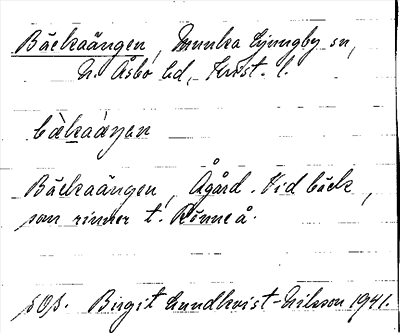 Bäckaängen, Munka Ljungby sn,
N. Åsbo hd, Krist. l.
bàkaáŋan
Bäckaängen, Ågård. Vid bäck,
som rinner t. Rönneå.
SOS. Birgit Lundkvist-Nilsson 1941.